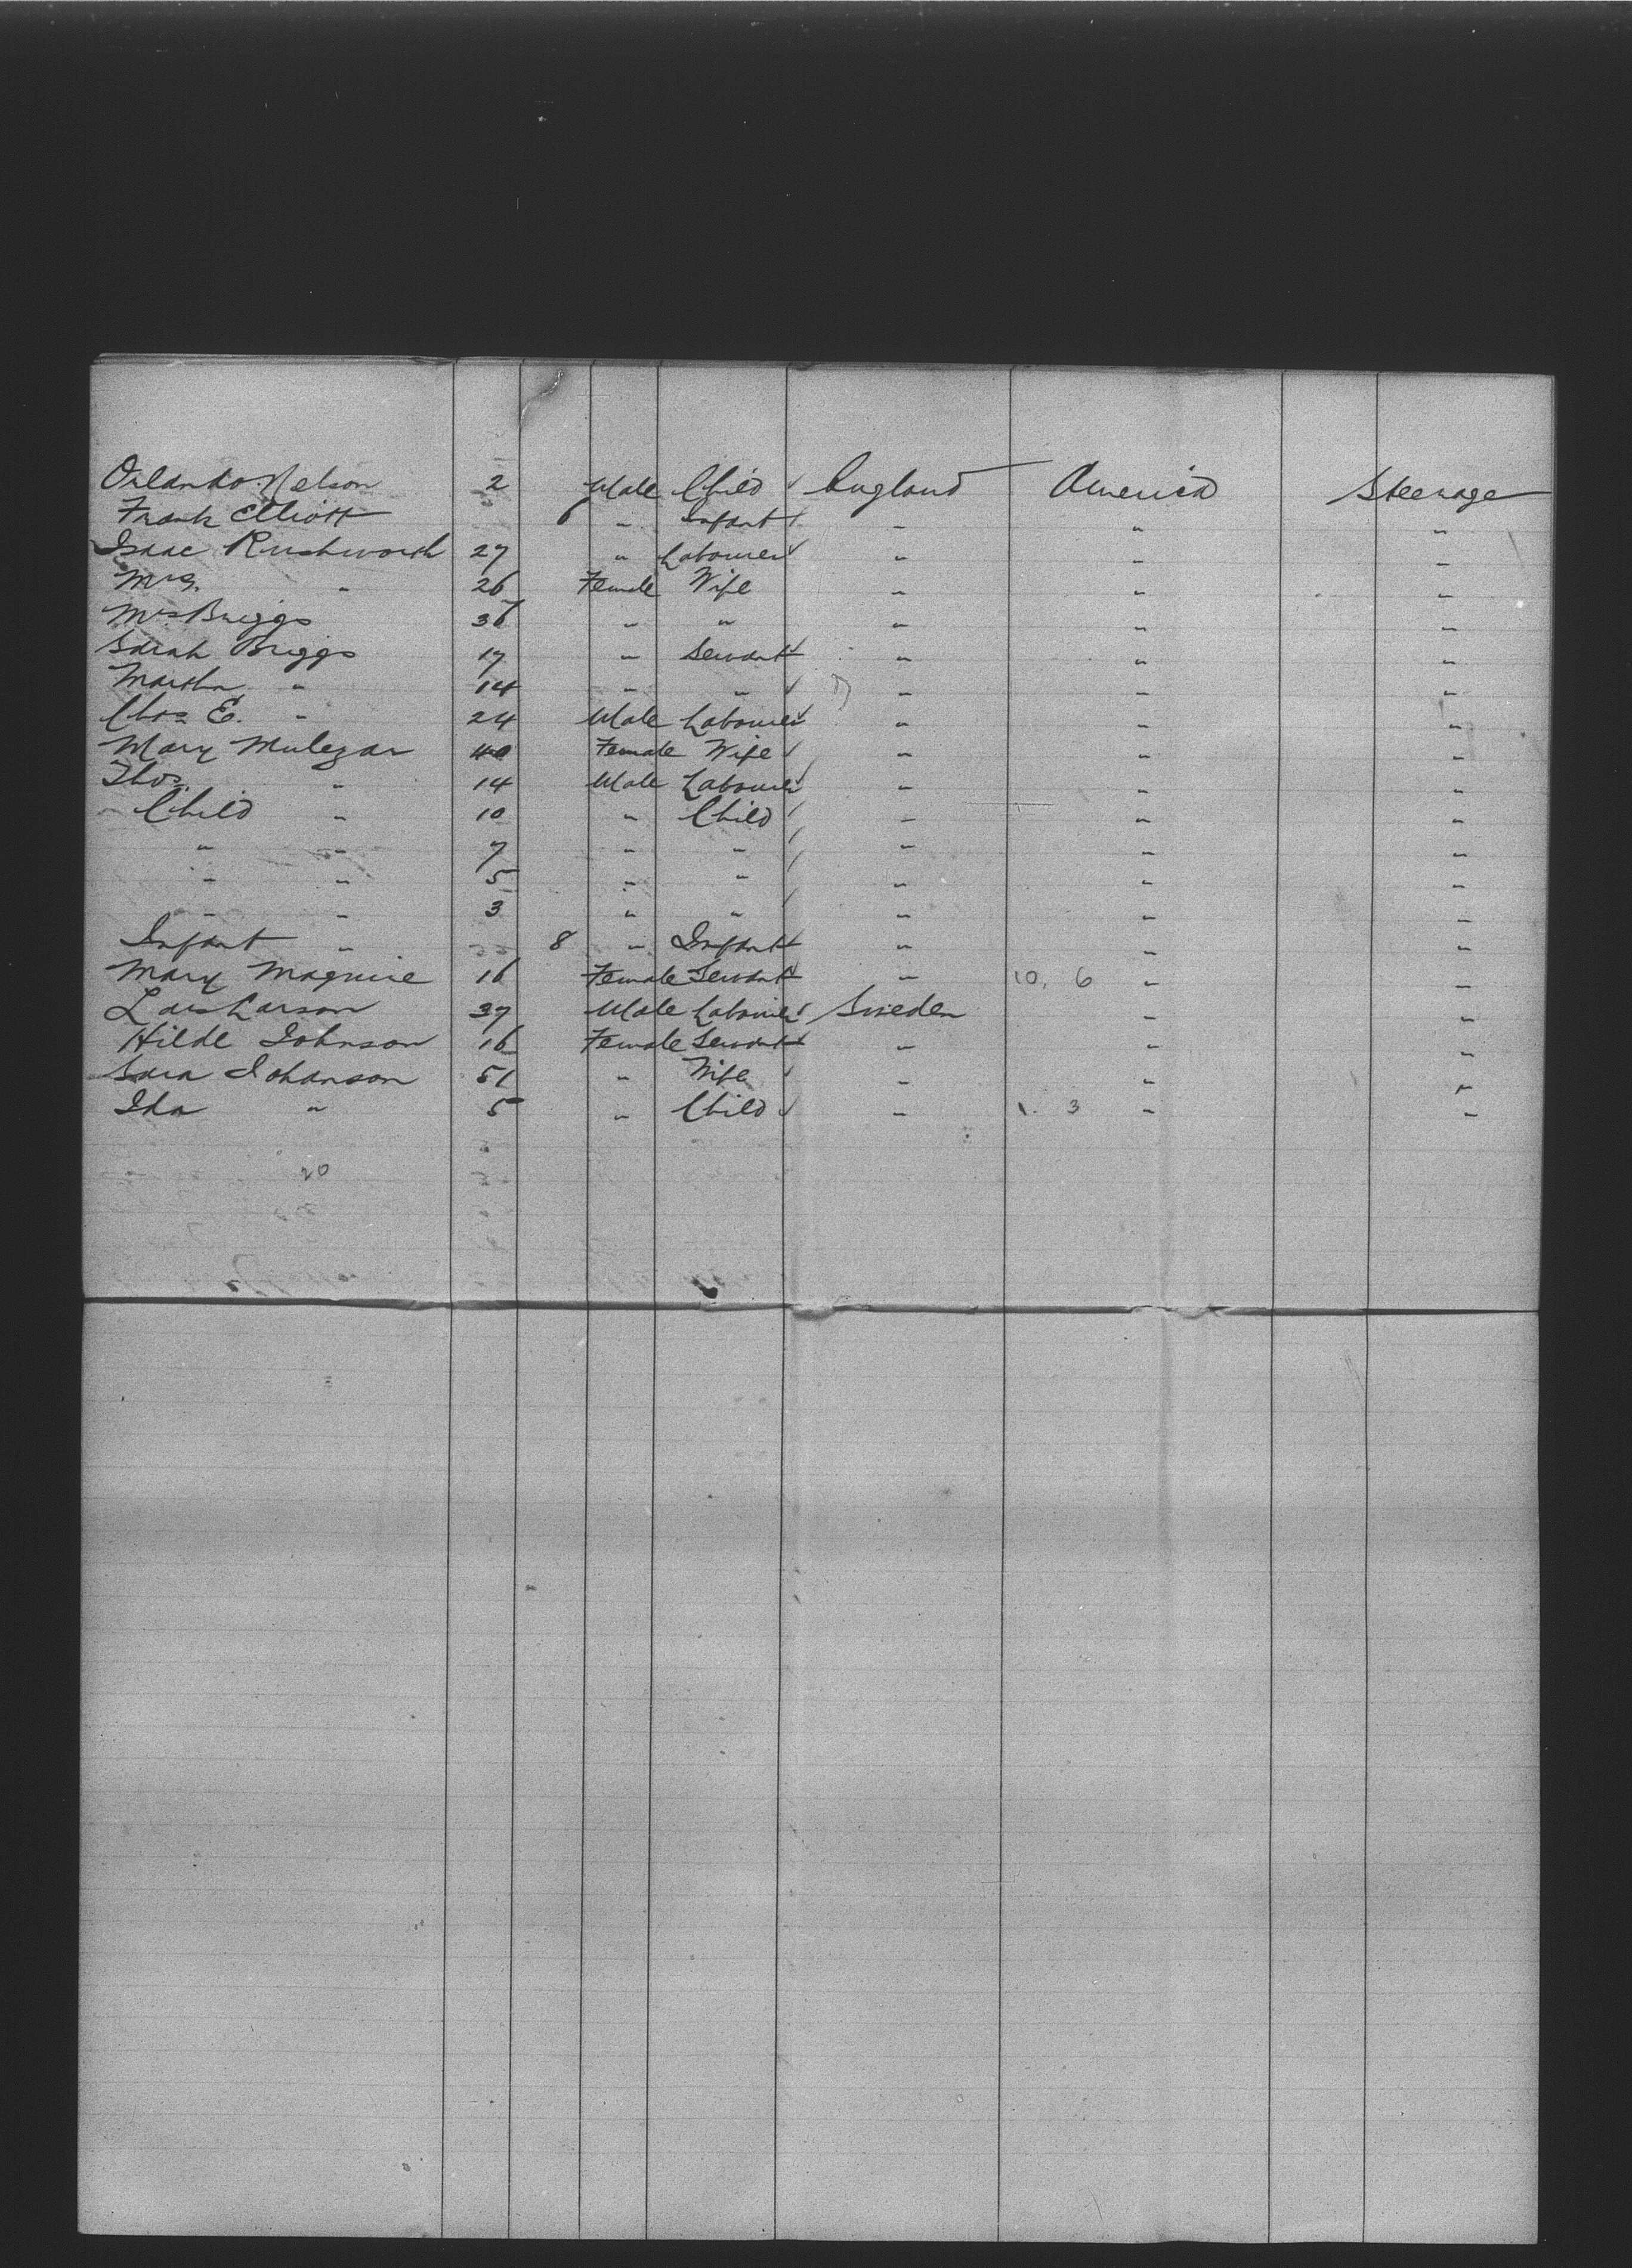 Orlando Nelson 2 Male Child England America Steerage
Frank Elliott 6 " Infant " " "
Isaac Rushworth 27 " Labourer " " "
Mrs. " 26 Female Wife " " "
Mrs Briggs 36 " " " " "
Sarah Briggs 17 " Servant " " "
Martha " 14 " " " " "
Chas E. " 24 Male Labourer " " "
Mary Mulegar 40 Female Wife " " "
Thos. " 14 Male Labourer " " "
Child " 10 " Child " " "
" " 7 " " " " "
" " 5 " " " " "
" " 3 " " " " "
Infant " 8 " Infant " " "
Mary Maguire 16 Female Servant " 10. 6 " "
Lars Larson 37 Male Labourer Sweden " "
Hilde Johnson 16 Female Servant " " "
Sara Johanson 51 " Wife " " "
Ida " 5 " Child " 1. 3 " "
20